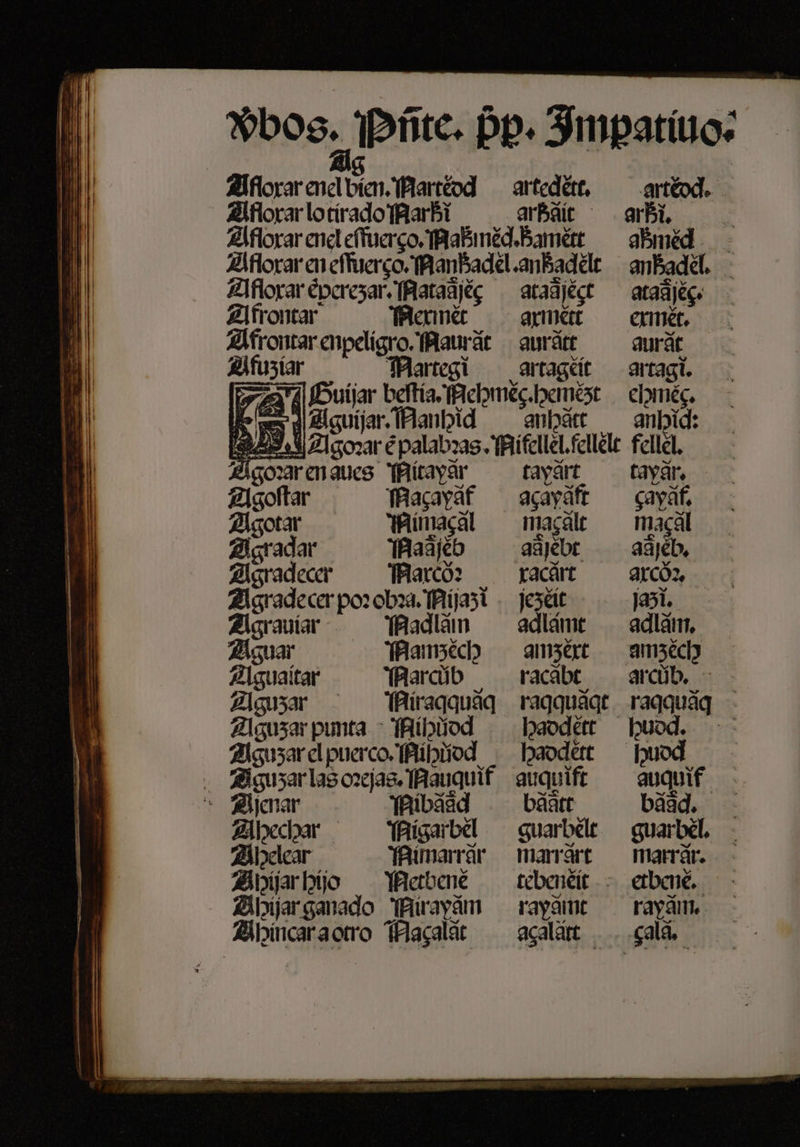 Vbos. Pñte. p̄p. Impatiuo:
Ag
Afloxar enel bien. Nartĕod artedĕtt, artĕod.
Afloxar lo tirado Narh̄i arh̄ăit arh̄i,
Afloxar enel effuerço. Nah̄mĕd. h̄amĕtt ah̄mĕd
Afloxar en effuerço. Nanh̄adĕl. anh̄adĕlt anh̄adĕl.
Afloxar éperezar. Nataăjĕç ataăjĕçt ataăjĕç.
Afrontar Nexmĕt axmĕtt exmĕt,
Afrontar enpeligro. Naurăt aurătt aurăt
Afuziar Nartegĭ artagĕit artagĭ.
Guijar beſtia. Nehmĕç. hemĕzt ehmĕç,
Aguijar. Nanhĭd anhătt anhĭd:
Agorar é palabras. Nifellĕl. fellĕlt fellĕl,
Agorar en aues Nitayăr tayărt tayăr,
Agoſtar Naçayăf açayăft çayăf,
Agotar Nimaçăl maçălt maçăl
Agradar Naăjĕb aăjĕbt aăjĕb,
Agradecer Naxcŏr xacărt axcŏr,
Agradecer por obra. Nijazĭ jezĕit jazĭ,
Agrauiar Nadlăm adlămt adlăm,
Aguar Namzĕch amzĕxt amzĕch
Aguaitar Narcŭb racăbt arcŭb,
Aguzar Niraqquăq raqquăqt raqquăq
Aguzar punta Nihŭod haodĕtt huod.
Aguzar el puerco. Nihŭod haodĕtt huod
Aguzar las orejas. Nauquĭf auquĭft auquĭf
Ajenar Nibăăd băătt băăd.
Ahechar Nigarbĕl guarbĕlt guarbĕl.
Ahelear Nimarrăr marrărt marrăr.
Ahijar hijo Netbenĕ tebenĕit etbenĕ.
Ahijar ganado Nirayăm rayămt rayăm.
Ahincar a otro Naçalăt açalătt çală,